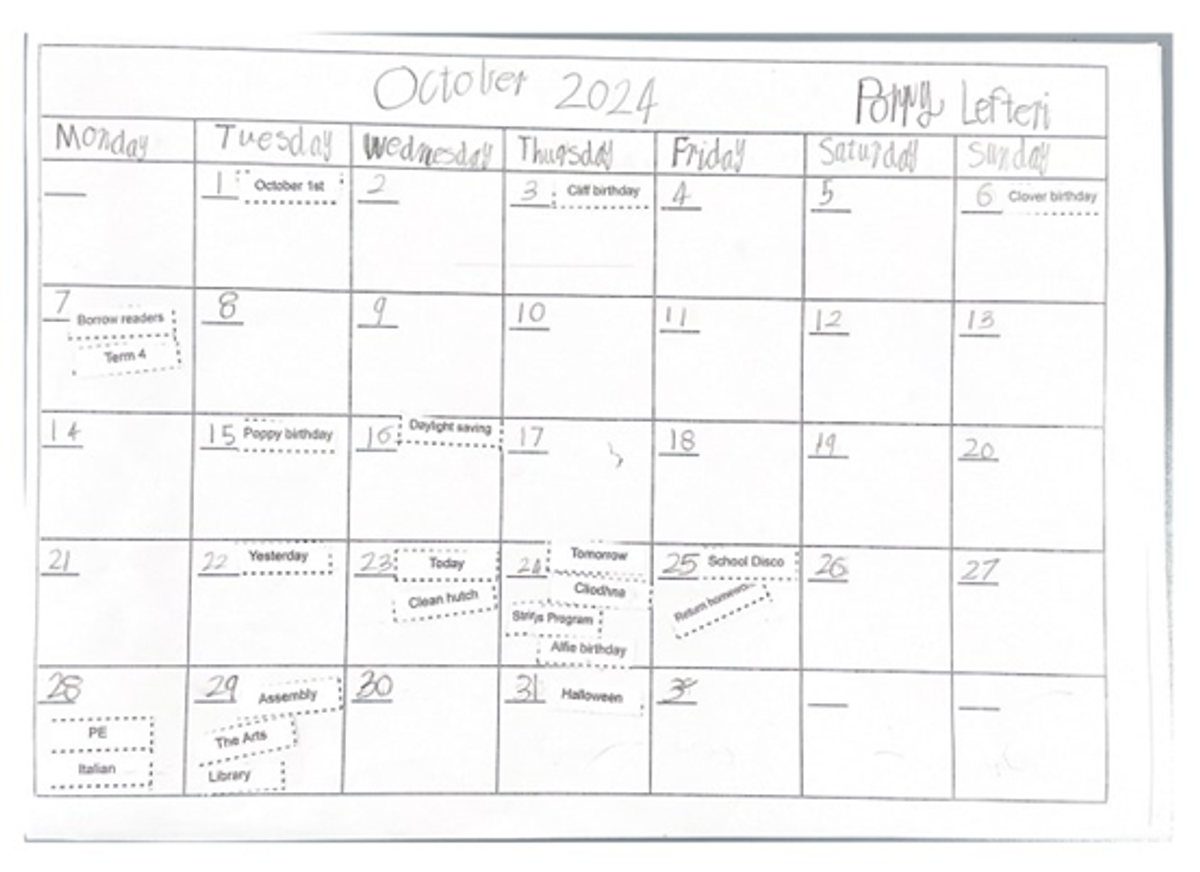 October 2024 Poppy Lefteri
Monday Tuesday Wednesday Thursday Friday Saturday Sunday
1 October 1st 2 3 Cliff birthday 4 5 6 Clover birthday
7 8 9 10 11 12 13
Borrow readers
Term 4
14 15 Poppy birthday 16 Daylight saving 17 18 19 20
21 22 Yesterday 23 Today 24 Tomorrow 25 School Disco 26 27
Clean hutch Cliodhna Return
Program
Alfie birthday
28 29 Assembly 30 31 Halloween
PE The Arts
Italian Library